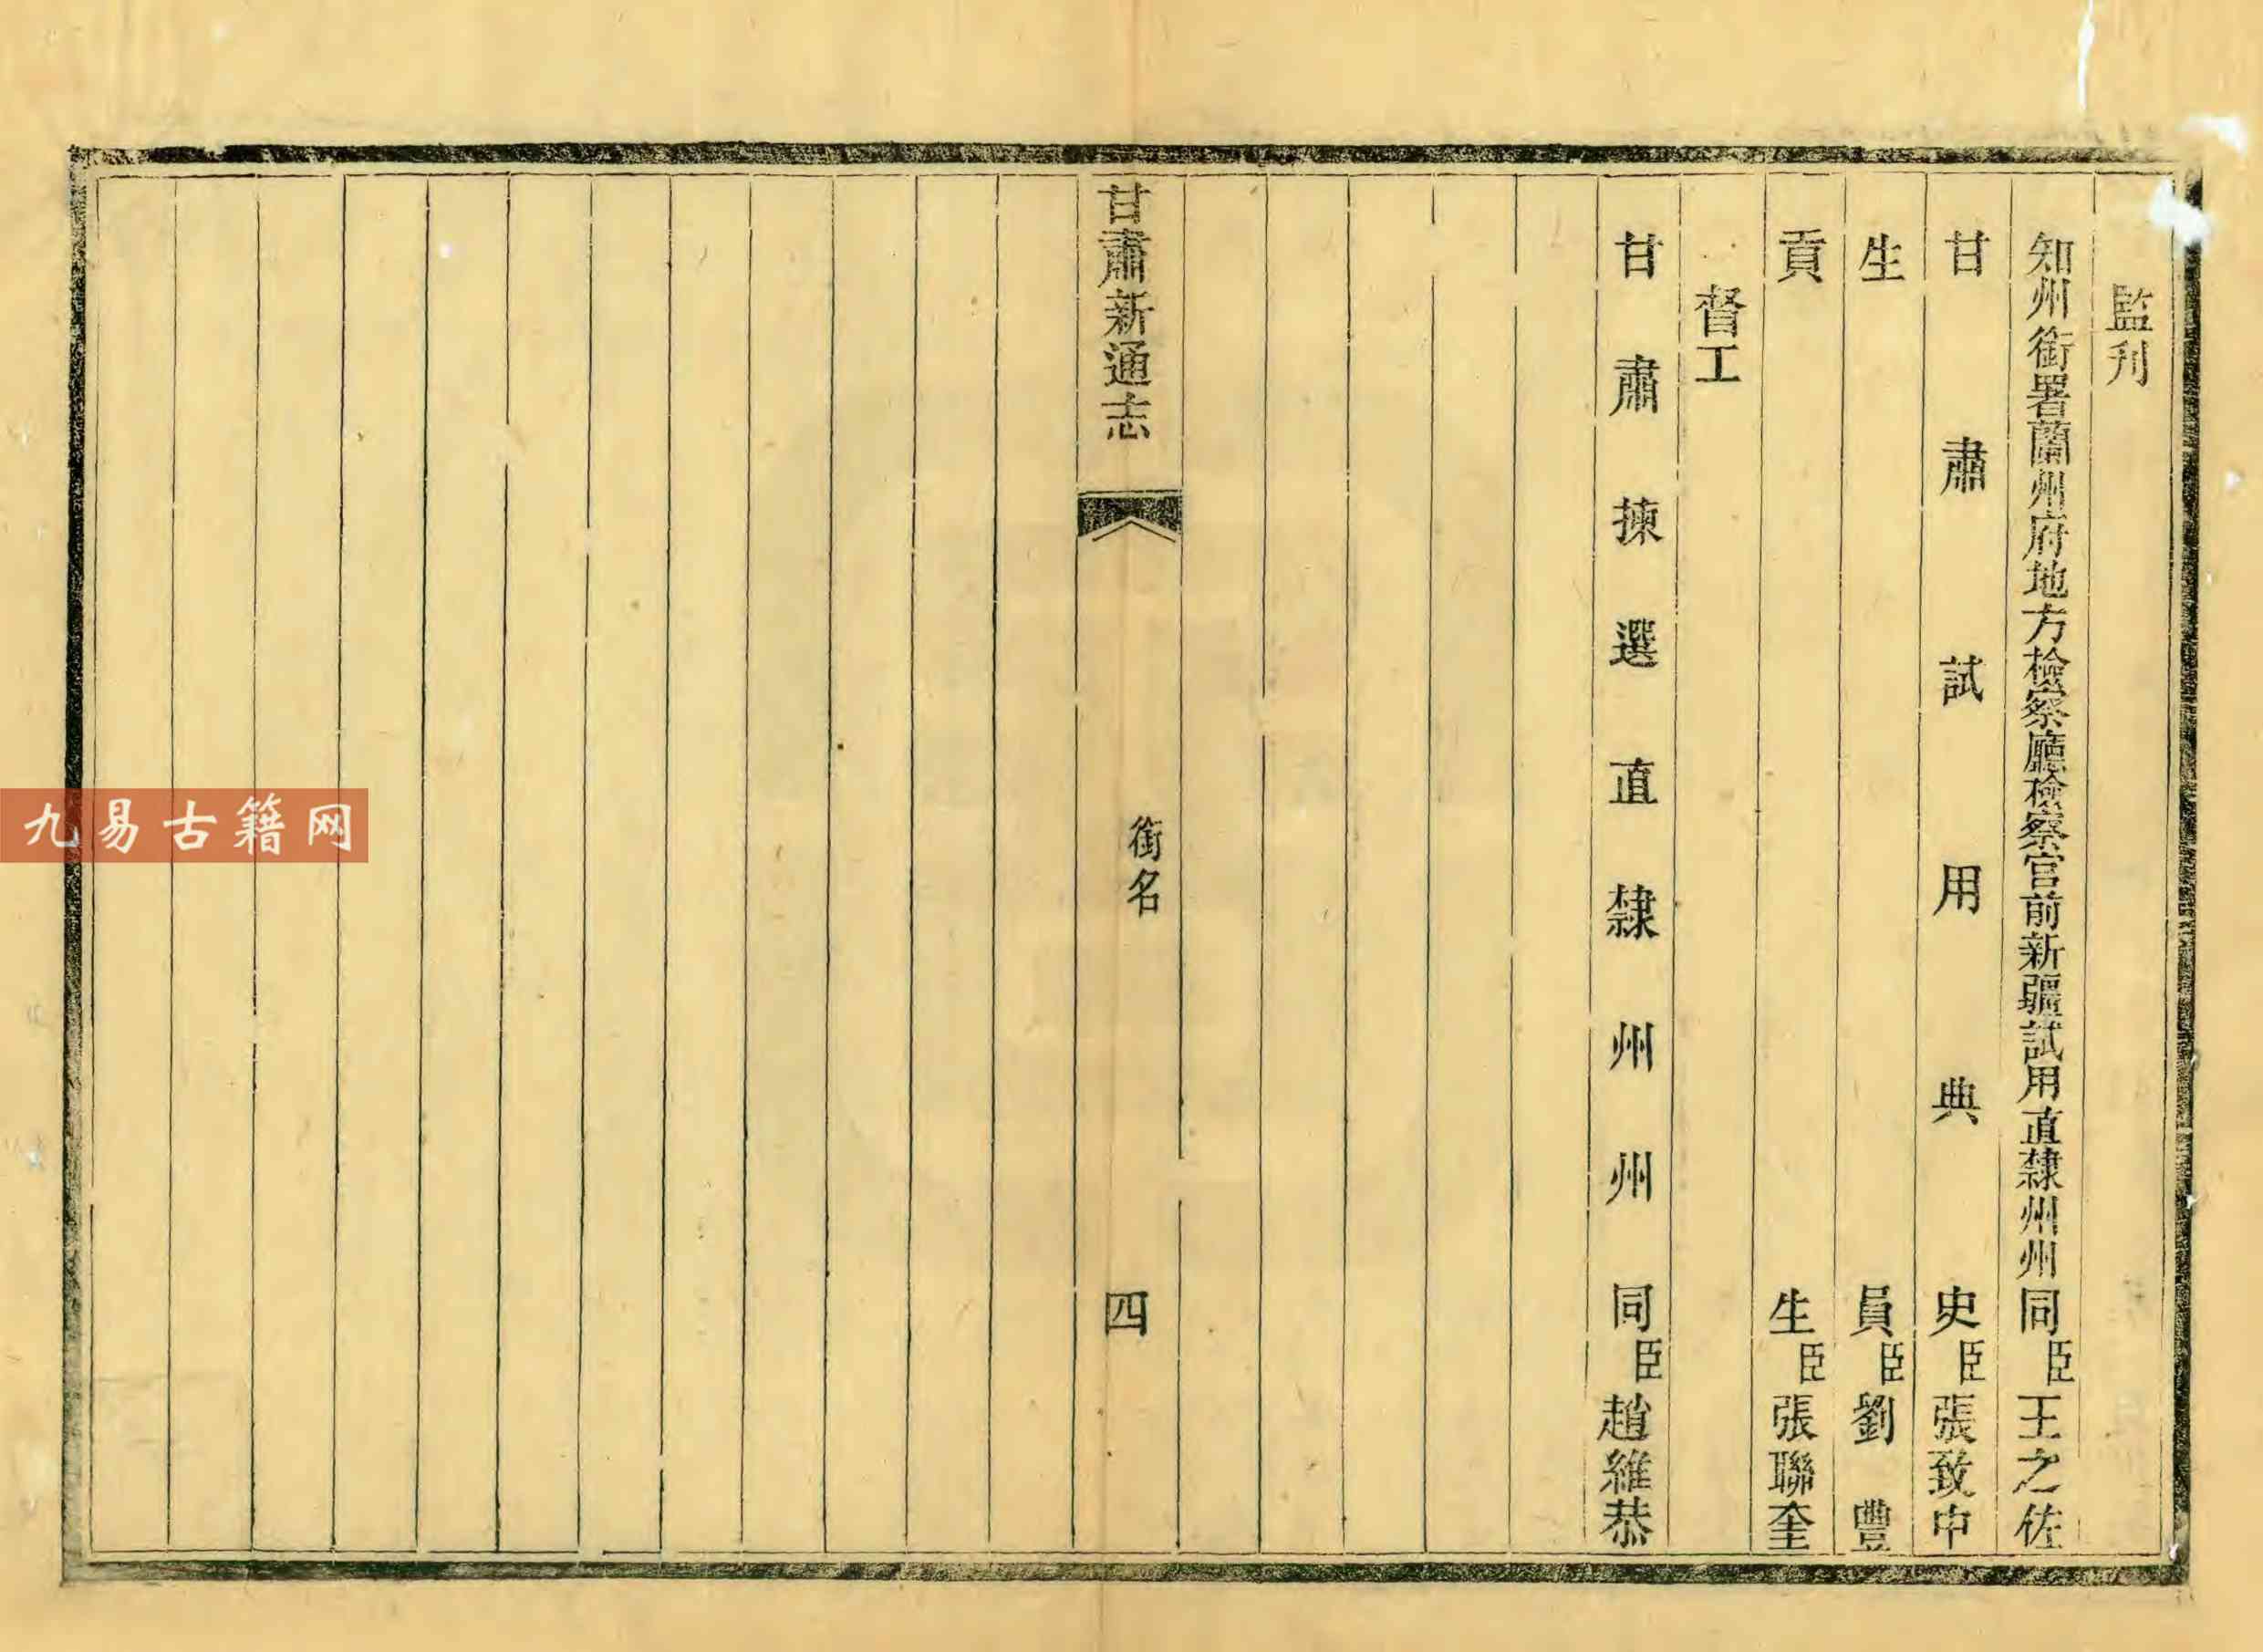 監刋
知州銜署蘭州府地方檢察廳檢察官前新疆試用直隸州州同臣王之佐
甘肅試用典史臣張致中
生員臣劉豐
貢生臣張聯奎
督工
甘肅揀選直隸州州同臣趙維恭
甘肅新通志
銜名
四
九易古籍网